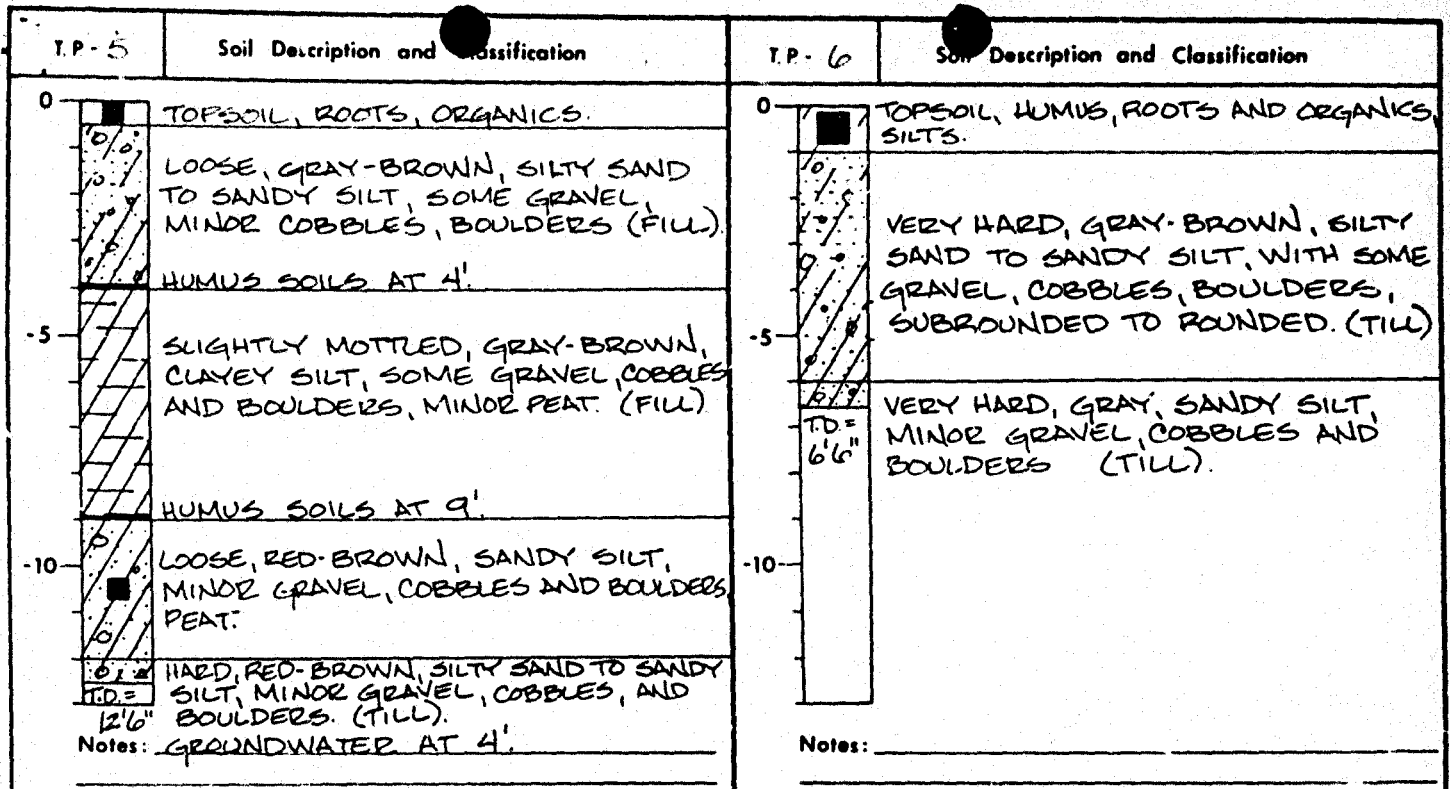 T.P - 5
Soil Description and Classification
0
TOPSOIL, ROOTS, ORGANICS.
LOOSE, GRAY-BROWN, SILTY SAND
TO SANDY SILT, SOME GRAVEL,
MINOR COBBLES, BOULDERS (FILL).
HUMUS SOILS AT 4'.
-5
SLIGHTLY MOTTLED, GRAY-BROWN,
CLAYEY SILT, SOME GRAVEL, COBBLES
AND BOULDERS, MINOR PEAT. (FILL)
HUMUS SOILS AT 9'.
-10
LOOSE, RED-BROWN, SANDY SILT,
MINOR GRAVEL, COBBLES AND BOULDERS,
PEAT.
HARD, RED-BROWN, SILTY SAND TO SANDY
SILT, MINOR GRAVEL, COBBLES, AND
BOULDERS. (TILL).
T.D.=
12'6"
Notes: GROUNDWATER AT 4'.
T.P - 6
Soil Description and Classification
0
TOPSOIL, HUMUS, ROOTS AND ORGANICS,
SILTS.
VERY HARD, GRAY-BROWN, SILTY
SAND TO SANDY SILT, WITH SOME
GRAVEL, COBBLES, BOULDERS,
SUBROUNDED TO ROUNDED. (TILL)
-5
VERY HARD, GRAY, SANDY SILT,
MINOR GRAVEL, COBBLES AND
BOULDERS (TILL).
T.D.=
6'6"
-10
Notes: